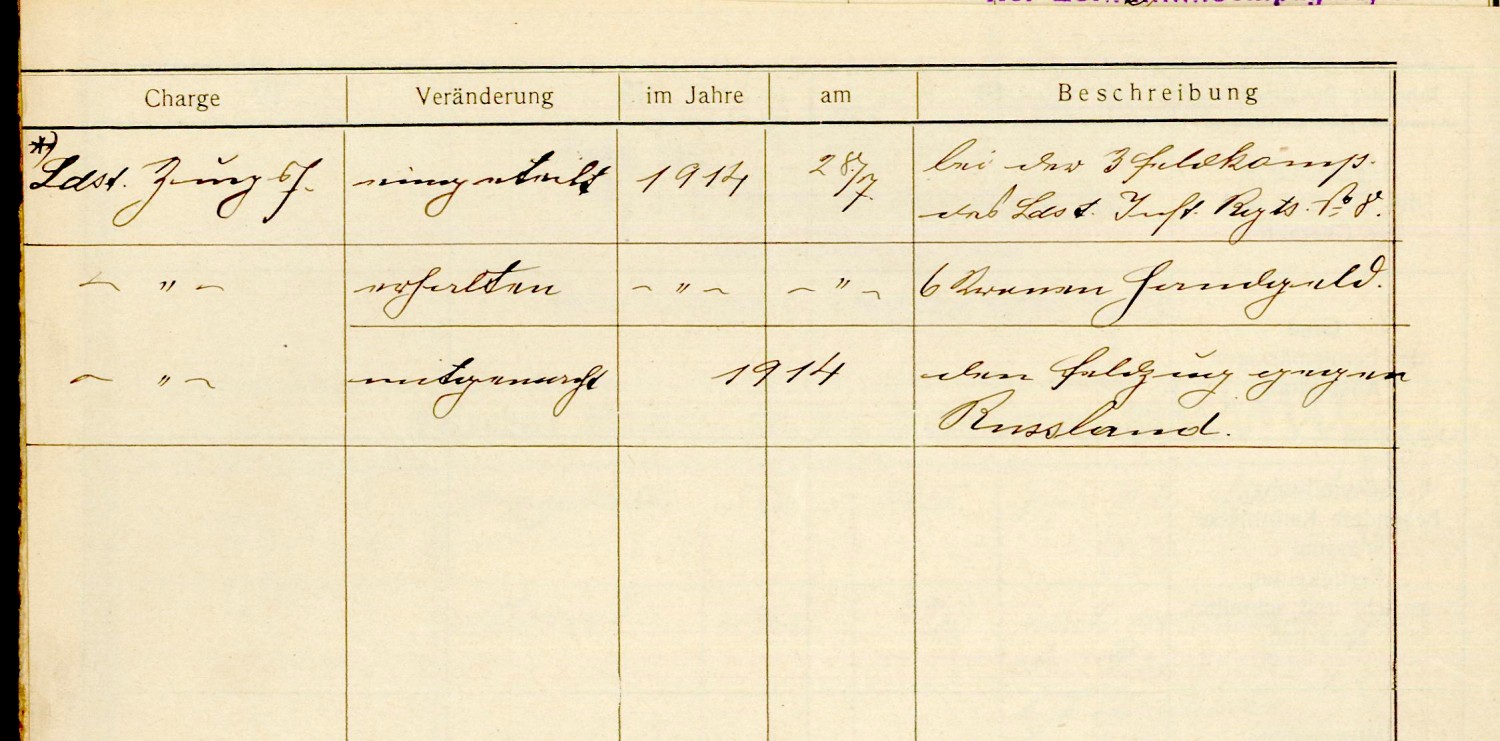 Charge Veränderung im Jahre am Beschreibung
*) Ldst. Zugsf. eingeteilt 1914 28/7 bei der 3 Feldkomp.
des Ldst. Inft. Regts. No 8.
— " — erhalten — " — — " — 6 Kronen Handgeld.
— " — mitgemacht 1914 den Feldzug gegen
Russland.